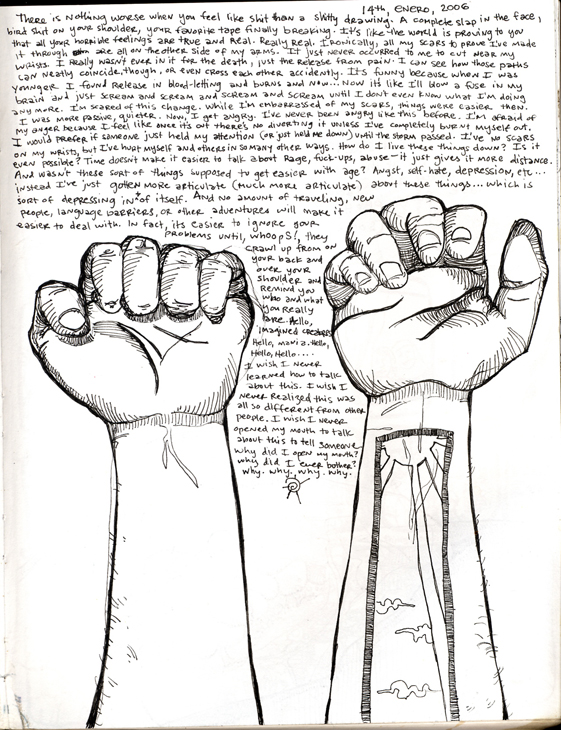 14th, ENERO, 2006
There is nothing worse when you feel like shit than a shitty drawing. A complete slap in the face,
bird shit on your shoulder, your favorite tape finally breaking. It's like the world is proving to you
that all your horrible feelings are true and real. Really real. Ironically, all my scars to prove I've made
it through are all on the other side of my arms. It just never occurred to me to cut near my
wrists. I really wasn't ever in it for the death, just the release from pain. I can see how those paths
can neatly coincide, though, or even cross each other accidently. It's funny because when I was
younger I found release in blood-letting and burns and now... now it's like I'll blow a fuse in my
brain and just scream and scream and scream and scream until I don't even know what I'm doing
any more. I'm scared of this change. While I'm embarrassed of my scars, things were easier then.
I was more passive, quieter. Now, I get angry. I've never been angry like this before. I'm afraid of
my anger because I feel like once it's out there's no diverting it unless I've completely burnt myself out.
I would prefer if someone just held my attention (or just held me down) until the storm passed. I've no scars
on my wrists, but I've hurt myself and others in so many other ways. How do I live these things down? Is it
even possible? Time doesn't make it easier to talk about rage, fuck-ups, abuse - it just gives it more distance.
And wasn't these sort of things supposed to get easier with age? Angst, self-hate, depression, etc...
instead I've just gotten more articulate (much more articulate) about these things... which is
sort of depressing in of itself. And no amount of traveling, new
people, language barriers, or other adventures will make it
easier to deal with. In fact, its easier to ignore your
problems until, whoops!, they
crawl up from on
your back and
over your
shoulder and
remind you
who and what
you really
are. Hello,
imagined creatures
Hello, mania. Hello,
Hello, Hello....
I wish I never
learned how to talk
about this. I wish I
never realized this was
all so different from other
people. I wish I never
opened my mouth to talk
about this to tell someone
why did I open my mouth?
why did I ever bother?
why. why. why. why.